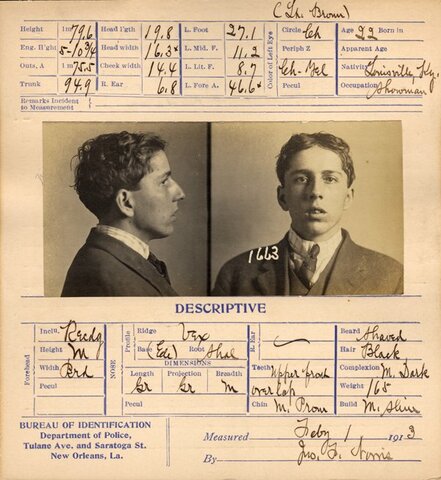 (Ch. Brown)
Height 1m 79.6 Head l'gth 19.8 L. Foot 27.1 Circle Ch Age 22 Born in
Eng. H'ght 5-10 3/4 Head width 16.3 L. Mid. F. 11.2 Periph Z Apparent Age
Outs. A 1m 75.5 Cheek width 14.4 L. Lit. F. 8.7 Color of Left Eye Ch-Yel Nativity Louisville, Ky.
Trunk 94.9 R. Ear 6.8 L. Fore A. 46.6 Pecul Occupation Showman
Remarks Incident
to Measurement
1663
DESCRIPTIVE
Forehead Incln. Recdg NOSE Profile Ridge Vex R. Ear Beard Shaved
Height M Base (Ele) Root Shal Hair Black
DIMENSIONS
Width Brd Length Gr Projection Gr Breadth M Teeth Upper front overlap Complexion M. Dark
Weight 165
Pecul Pecul Chin M. Prom Build M. Slim
BUREAU OF IDENTIFICATION
Department of Police,
Tulane Ave. and Saratoga St.
New Orleans, La.
Measured Feby 1 1913
By Jno. F. Norris